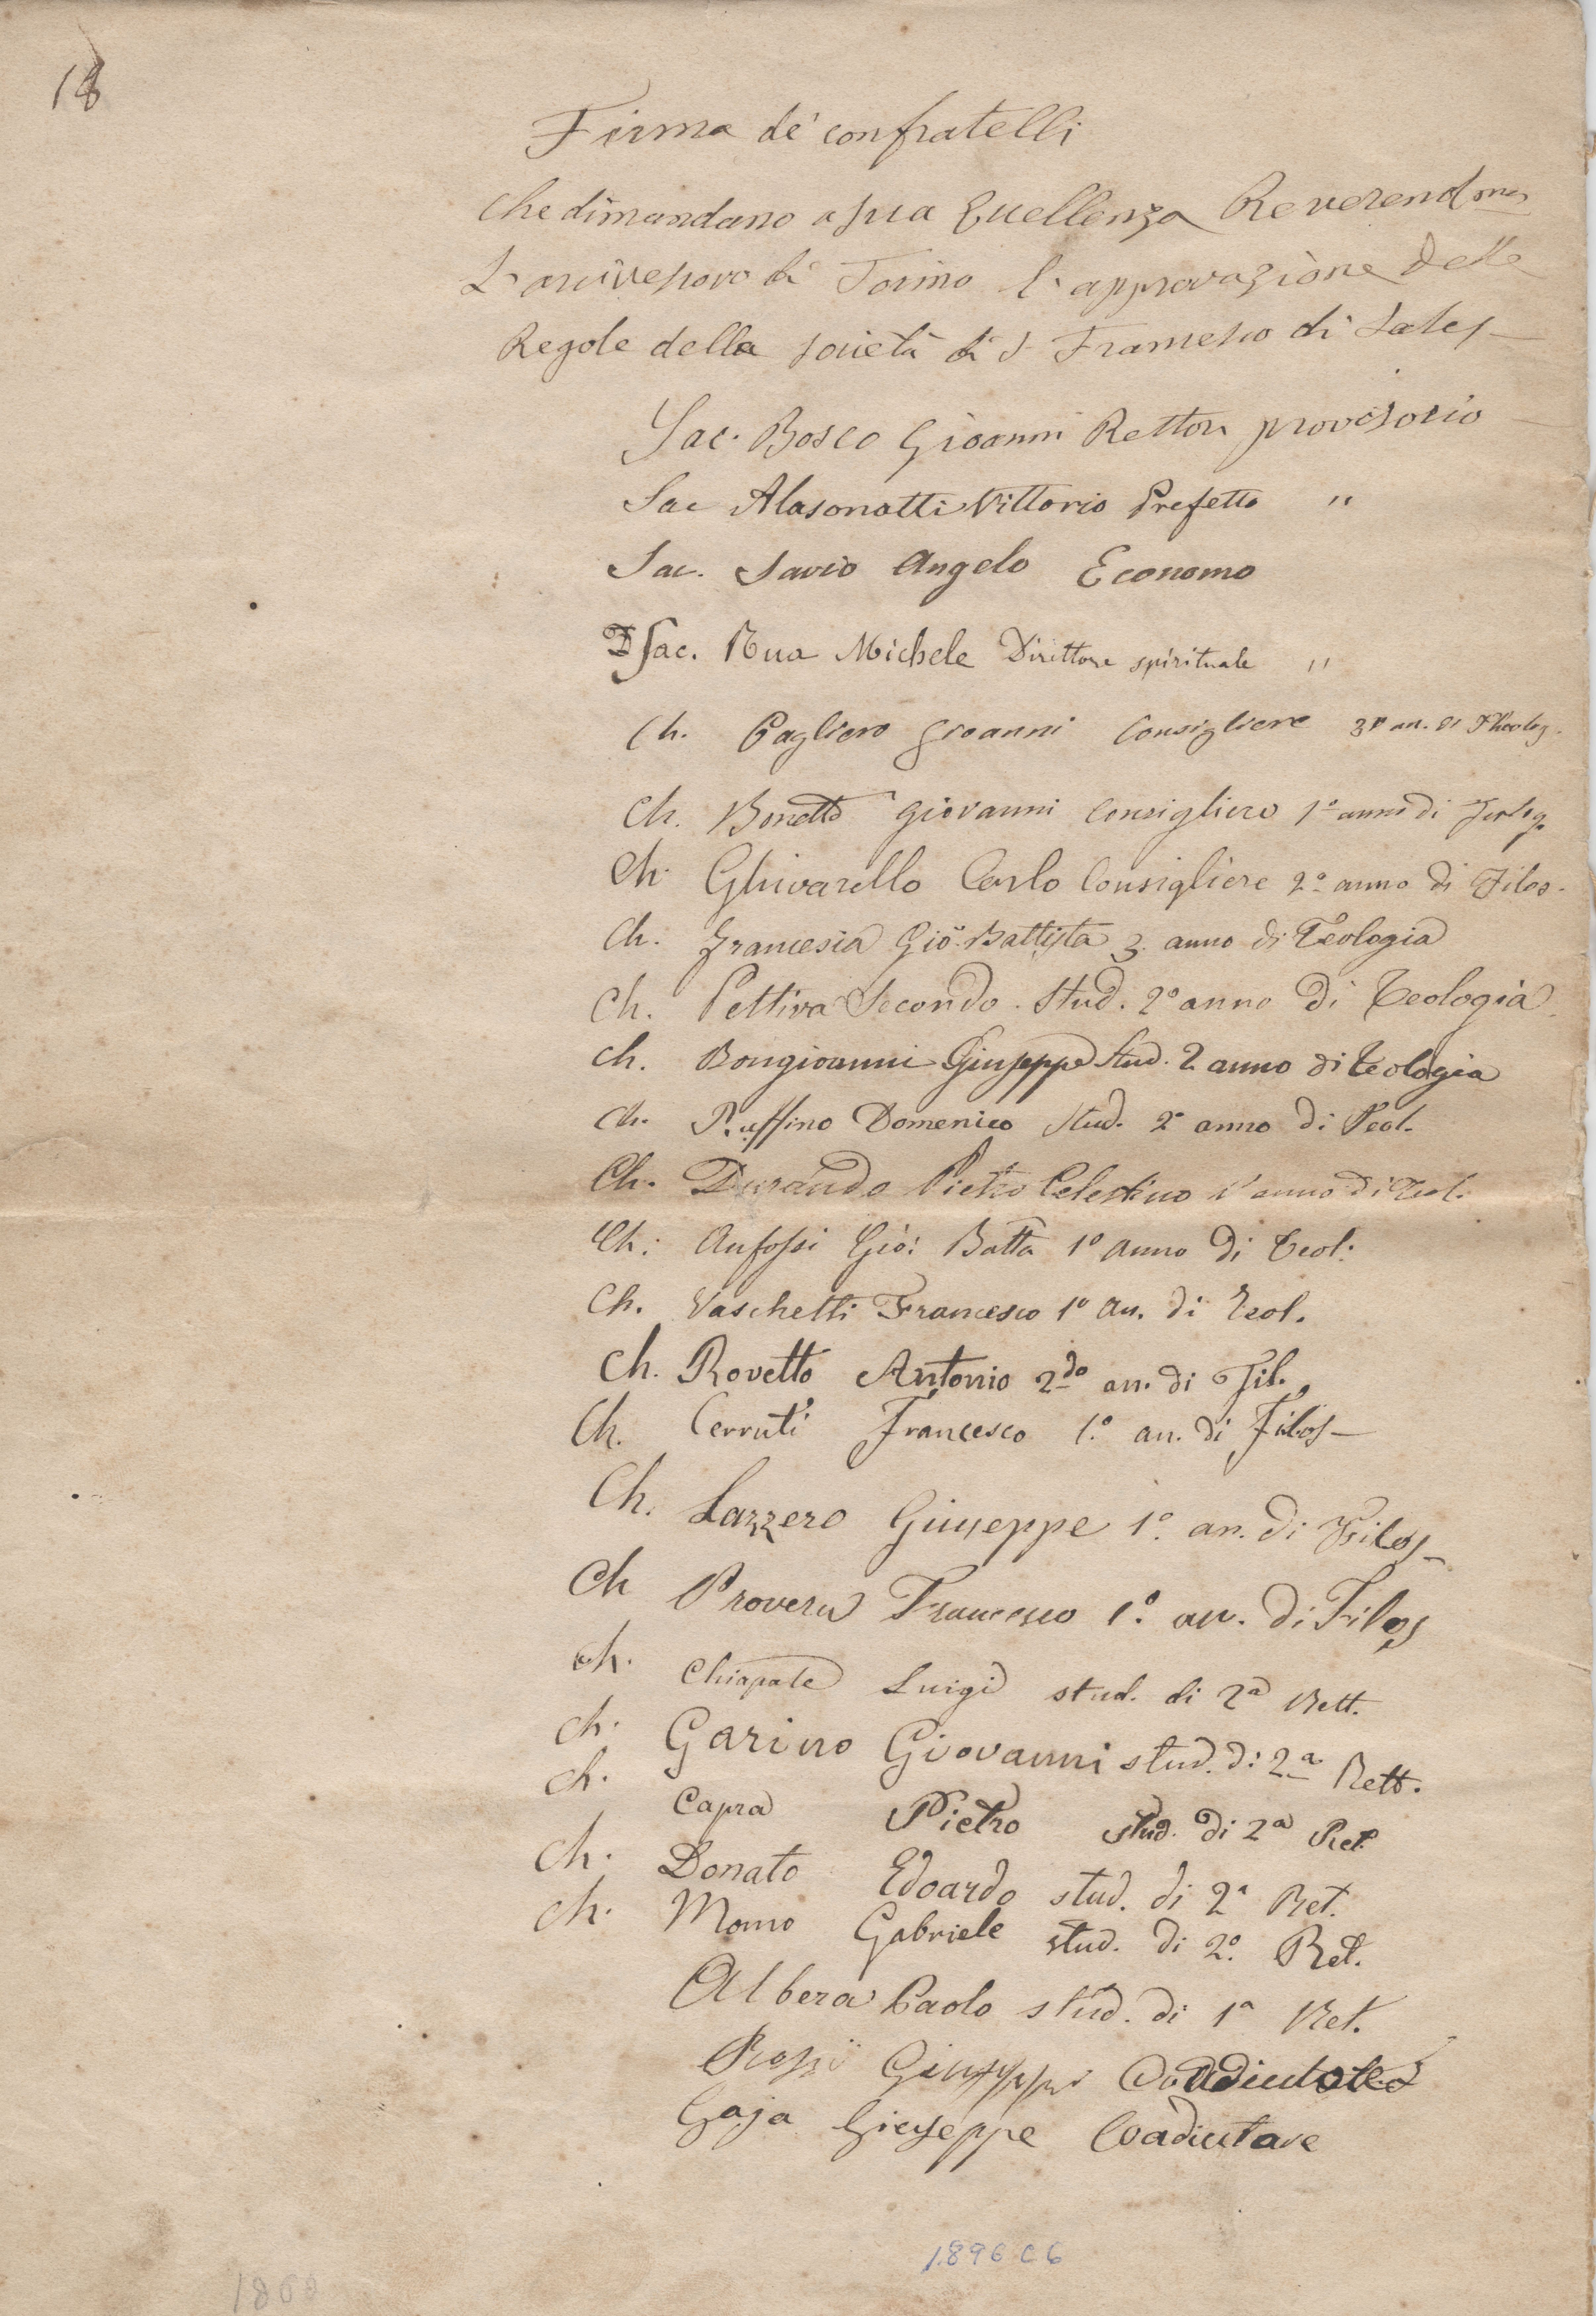 18
Firma de' confratelli
che dimandano a sua Eccellenza Reverendma
L'arcivescovo di Torino l'approvazione delle
Regole della società di S. Francesco di Sales
Sac. Bosco Gioanni Rettore provisorio
Sac Alasonatti Vittorio Prefetto "
Sac. Savio Angelo Economo
D Sac. Rua Michele Direttore spirituale "
Ch. Cagliero Gioanni Consigliere 3º an. di Theolog.
Ch. Bonetti Giovanni Consigliere 1º anno di Teolog.
Ch. Ghivarello Carlo Consigliere 2º anno di Filos.
Ch. Francesia Gio. Battista 3. anno di Teologia
Ch. Pettiva Secondo. Stud. 2º anno di Teologia.
Ch. Bongioanni Giuseppe Stud. 2 anno di Teologia
Ch. Ruffino Domenico Stud. 2º anno di Teol.
Ch. Durando Pietro Celestino 1º anno di Teol.
Ch: Anfossi Gio: Batta 1º anno di Teol:
Ch. Vaschetti Francesco 1º an. di Teol.
Ch. Rovetto Antonio 2do an. di Fil.
Ch. Cerruti Francesco 1.º an. di Filos
Ch. Lazzero Giuseppe 1º. an. di Filos
Ch Provera Francesco 1.º an. di Filos
Ch. Chiapale Luigi stud. di 2ª Rett.
Ch. Garino Giovanni stud. di 2ª Rett.
Ch. Capra Pietro stud. di 2ª Ret.
Ch. Donato Edoardo stud. di 2ª Ret.
Ch. Momo Gabriele stud. di 2º. Ret.
Albera Paolo stud. di 1ª Ret.
Rossi Giuseppe Coadiutore
Gaja Giuseppe Coadiutore
1896 C6
1860